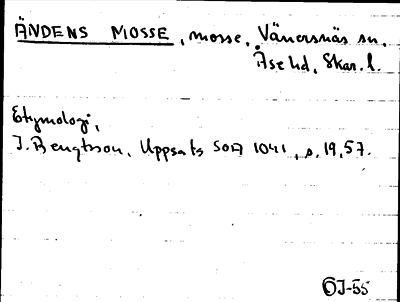 ÄNDENS MOSSE, mosse, Vänersnäs sn,
Åse hd, Skar. l.
Etymologi,
J. Bengtsson, Uppsats SOA 1041, s. 19, 57.
ÖJ-55